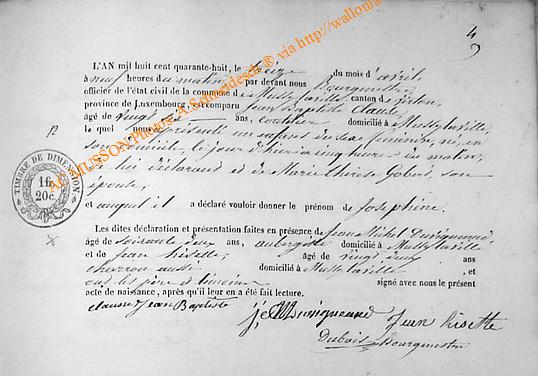 4
9
L'AN mil huit cent quarante-huit, le treize du mois d'avril,
à neuf heures du matin, par devant nous Bourgmestre,
officier de l'état civil de la commune de Mussy-la-ville canton de Virton,
province de Luxembourg, est comparu Jean Baptiste Claude,
âgé de vingt ans, domicilié à Mussy-la-ville,
12
le quel nous a présenté un enfant du sexe féminin, né, en
son domicile, le jour d'hier à cinq heures du matin,
de lui déclarant et de Marie Thérèse Gobert, son
épouse,
et auquel il a déclaré vouloir donner le prénom de Joséphine.
TIMBRE DE DIMENSION
1 fr.
20 c.
Les dites déclaration et présentation faites en présence de Jean Michel
âgé de soixante deux ans, aubergiste domicilié à Mussy-la-ville
et de Jean âgé de vingt deux ans
charron aussi domicilié à Mussy-la-ville, et
ont les père et témoins signé avec nous le présent
acte de naissance, après qu'il leur en a été fait lecture.
Jean Baptiste
Jean
Dubois Bourgmestre
AC MUSSON Photos A.Schneidesch ® via http://wallonia